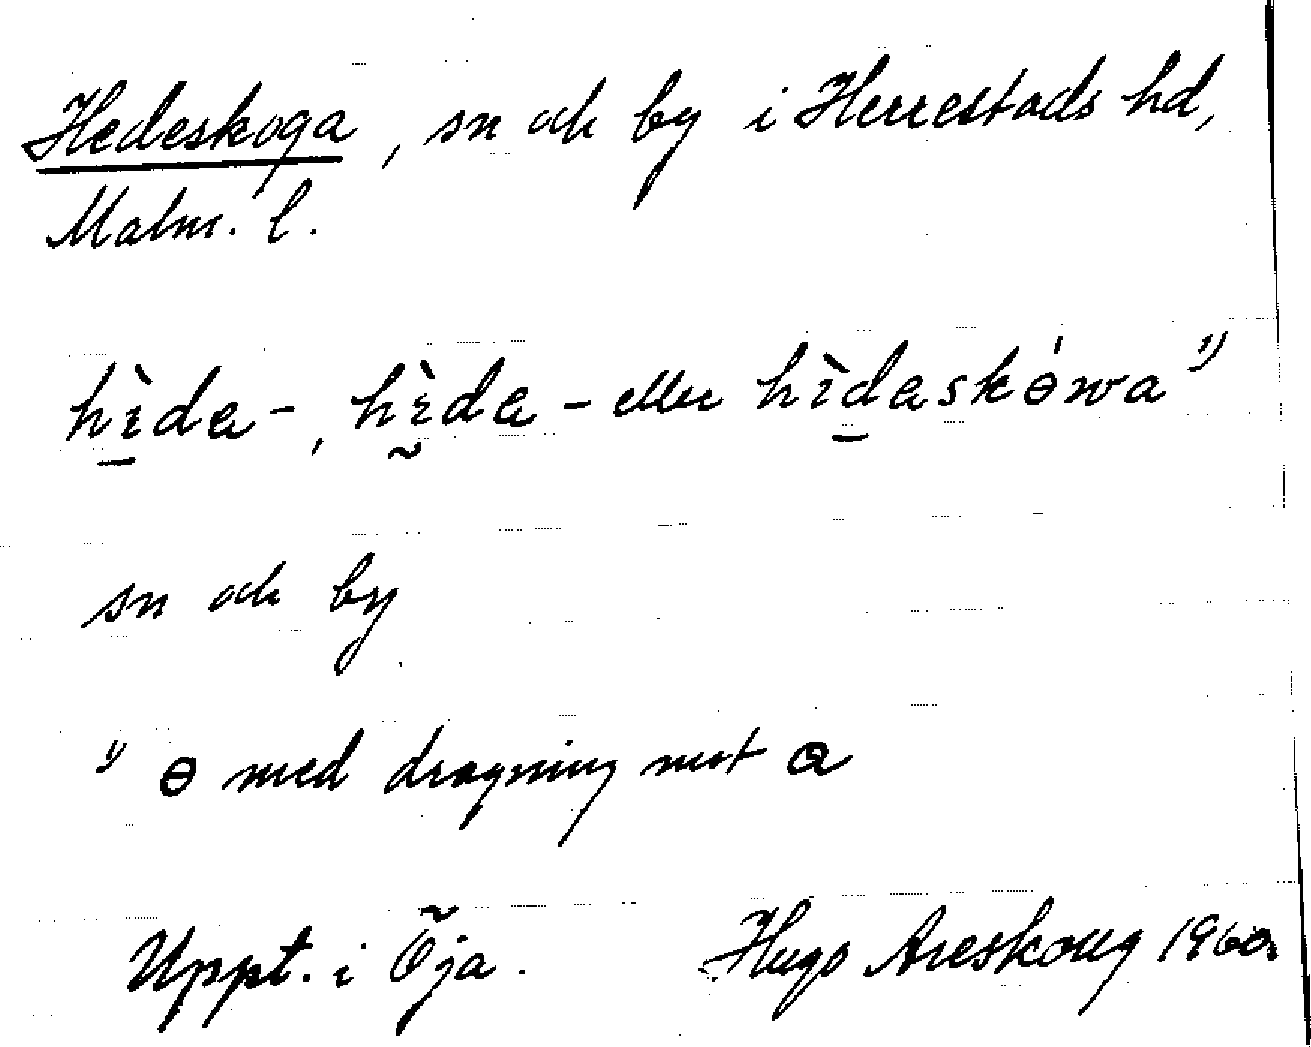 Hedeskoga, sn och by i Herrestads hd,
Malm. l.
hɪ̱̀da-, hɪ̰̀da- eller hɪ̀ḏaskѳ́wa ¹⁾
sn och by
¹⁾ ѳ med dragning mot a
Uppt. i Öja. Hugo Areskoug 1960.